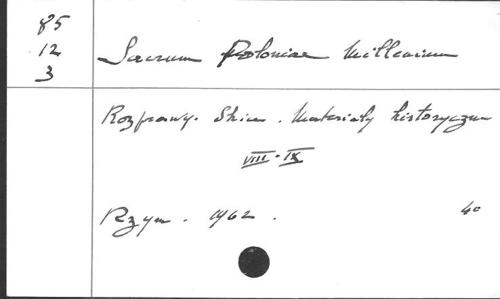 85
12
3
Sacrum Poloniae Millenium
Rozprawy. Szkice. Materiały historyczne
VIII-IX
Rzym. 1962.
4°